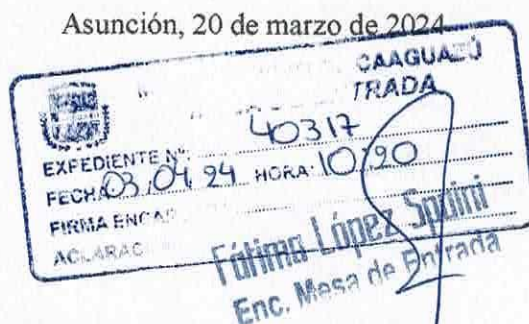 Asunción, 20 de marzo de 2024
CAAGUAZÚ
TRADA
EXPEDIENTE N°: 40317
FECHA 03,04,24 HORA: 10:20
FIRMA ENCAR
ACLARAC
Fátima López
Enc. Mesa de Entrada